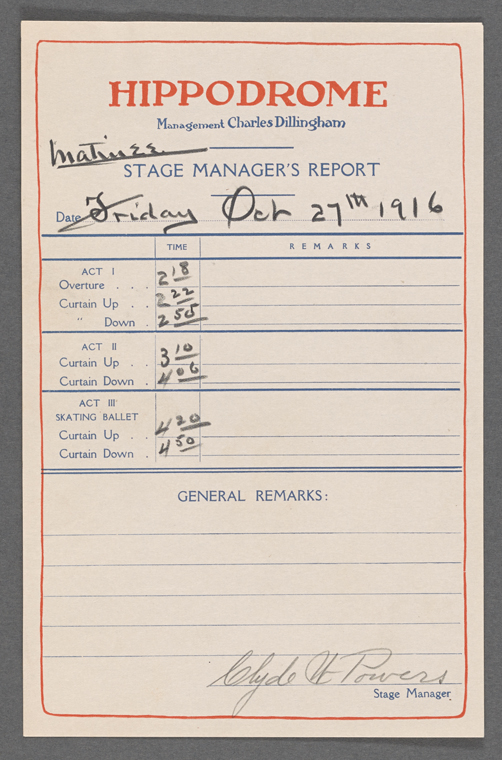 HIPPODROME
Management Charles Dillingham
Matinee
STAGE MANAGER'S REPORT
Date Friday Oct 27th 1916
TIME REMARKS
ACT I
Overture . . . 2 18
Curtain Up . . . 2 22
" Down . 2 55
ACT II
Curtain Up . . 3 10
Curtain Down . 4 06
ACT III
SKATING BALLET
Curtain Up . . 4 20
Curtain Down . 4 50
GENERAL REMARKS:
Clyde W Powers
Stage Manager